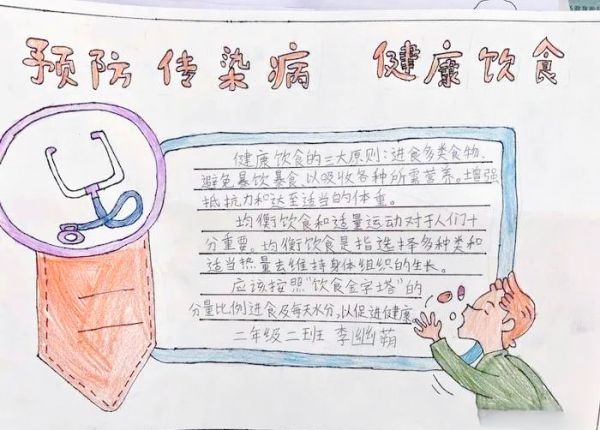 预防传染病 健康饮食
健康饮食的三大原则：进食多类食物、
避免暴饮暴食、以吸收各种所需营养。增强
抵抗力和达至适当的体重。
均衡饮食和适量运动对于人们十
分重要。均衡饮食是指选择多种类和
适当热量去维持身体组织的生长。
应该按照"饮食金字塔"的
分量比例进食及每天水分，以促进健康
二年级二班 李幽萌